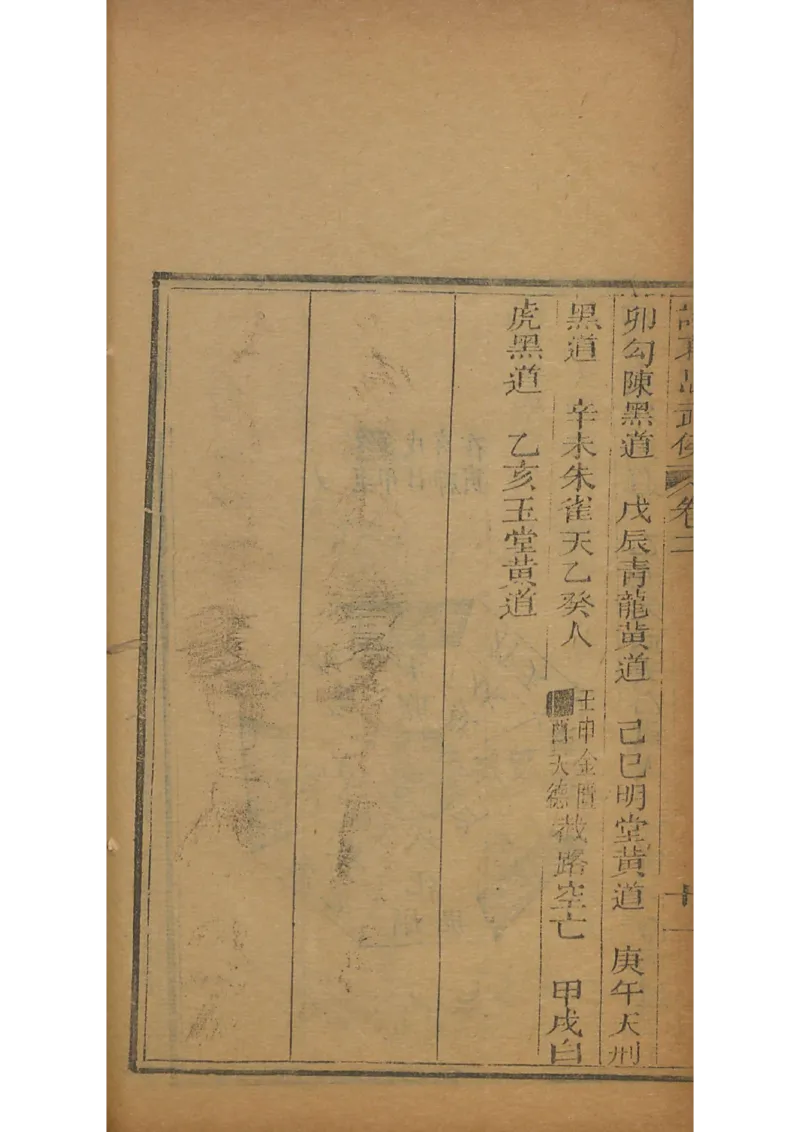 武侯 卷二
十一
卯勾陳黑道 戊辰青龍黃道 己巳明堂黃道 庚午天刑
黑道 辛未朱雀天乙癸人 壬申金匱 酉天德 截路空亡 甲戌白
虎黑道 乙亥玉堂黃道